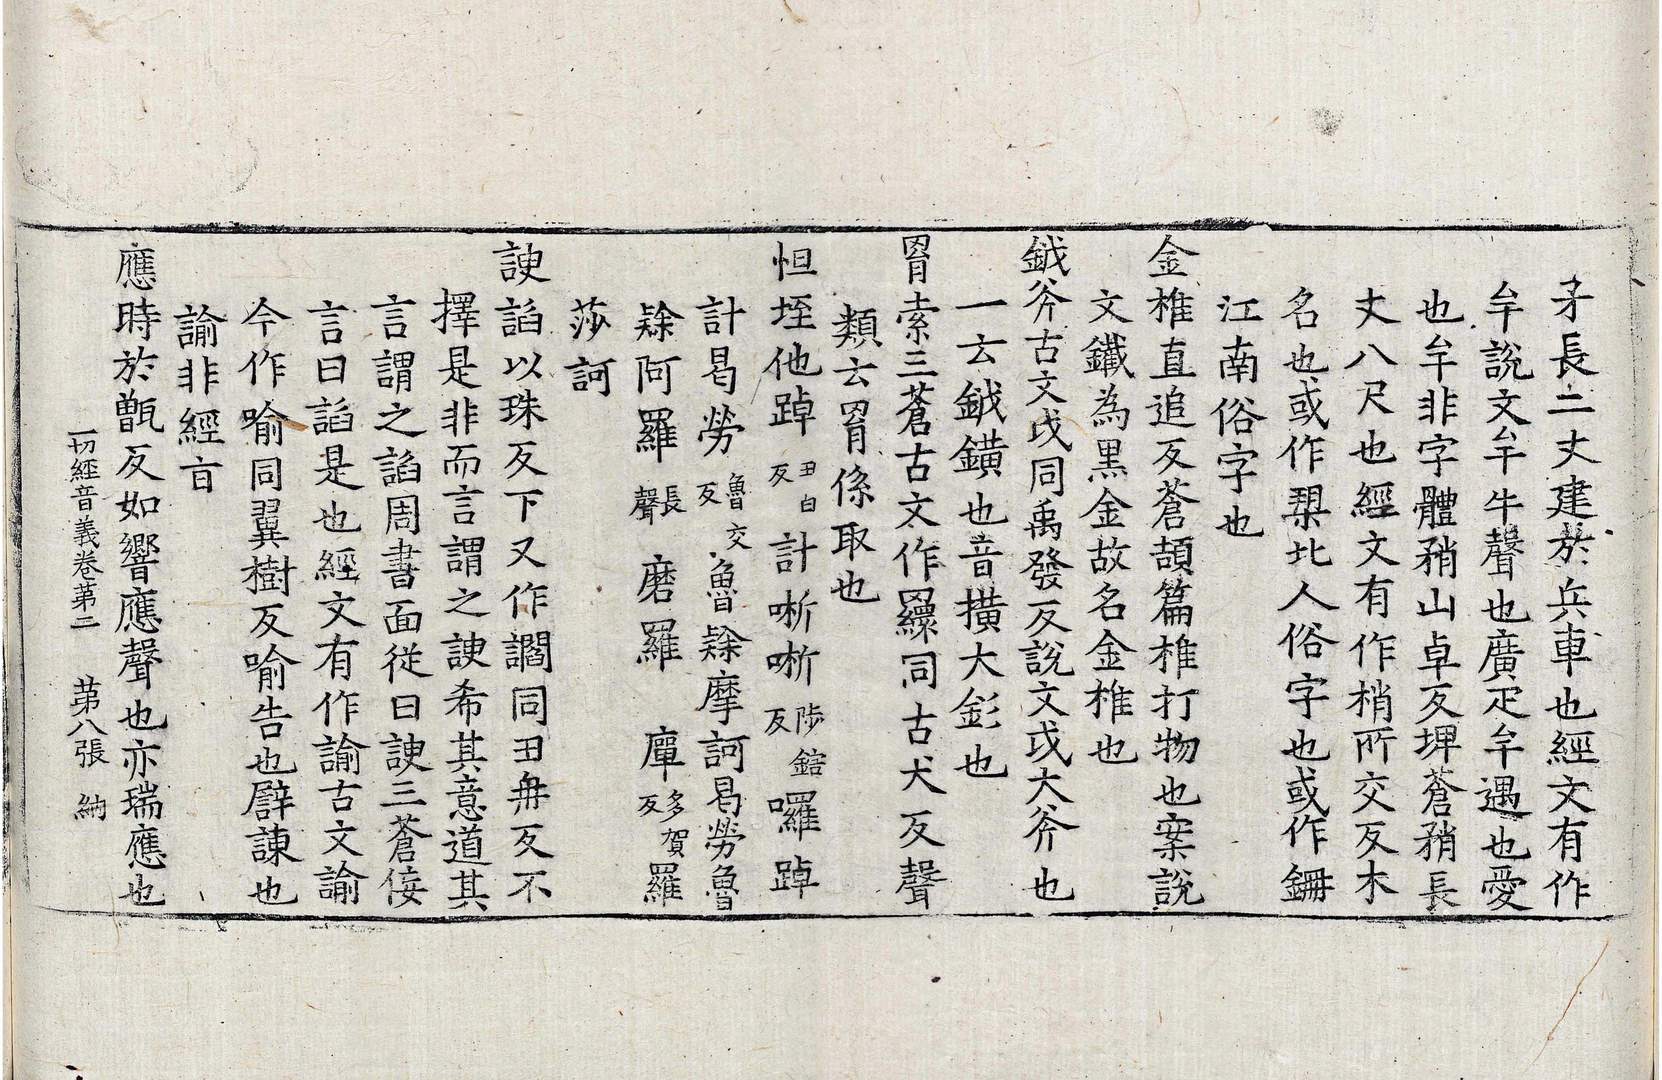 矛長二丈建於兵車也經文有作
牟說文牟牛聲也廣疋牟遇也愛
也牟非字體矟山卓反埤蒼矟長
丈八尺也經文有作梢所交反木
名也或作槊北人俗字也或作鎙
江南俗字也
金椎直追反蒼頡篇椎打物也案說
文鐵為黑金故名金椎也
鉞斧古文戉同禹發反說文戉大斧也
一云鉞鐄也音撗大釤也
罥索三蒼古文作羂同古犬反聲
類云罥係取也
怛垤他踔丑白反計晣晣陟鎋反囉踔
計曷勞魯交反魯䅎摩訶曷勞魯
䅎阿羅長聲磨羅㢆多賀反羅
莎訶
諛諂以珠反下又作讇同丑冉反不
擇是非而言謂之諛希其意道其
言謂之諂周書面從曰諛三蒼佞
言曰諂是也經文有作諭古文諭
今作喻同翼樹反喻告也譬諫也
諭非經旨
應時於甑反如響應聲也亦瑞應也
一切經音義卷第二 第八張 納